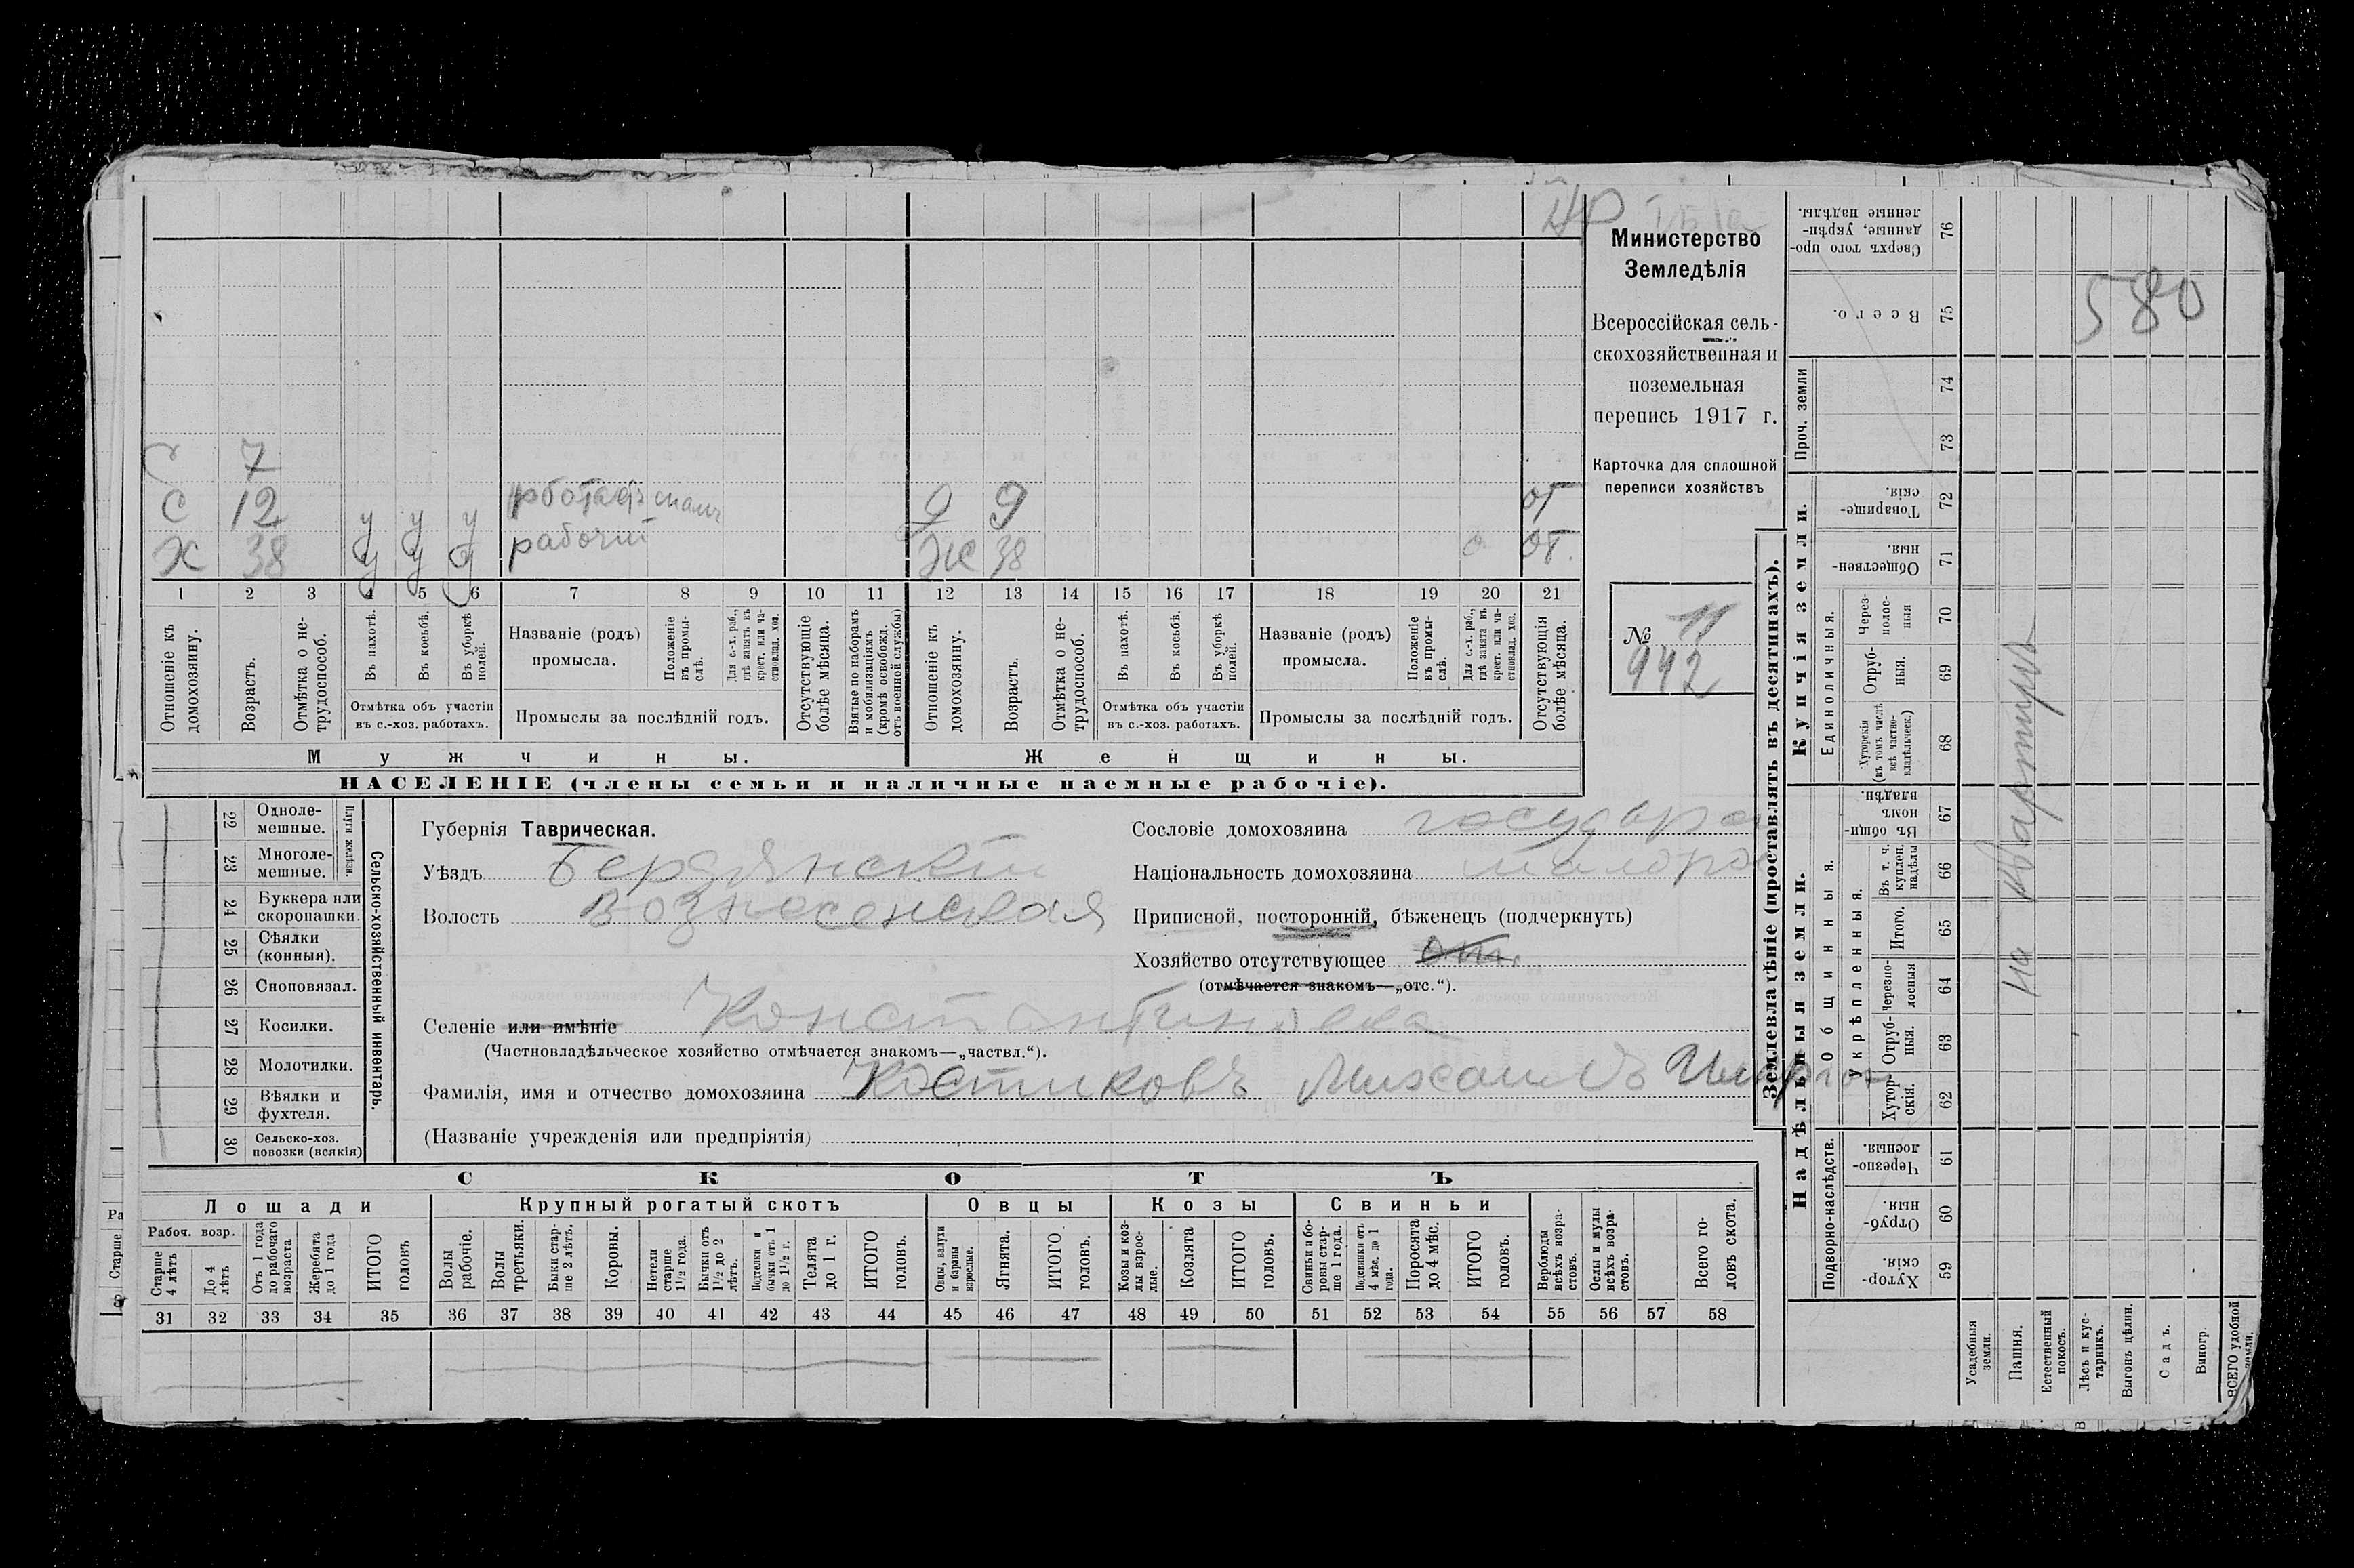 580
Министерство
Земледѣлія
Всероссійская сель-
скохозяйственная и
поземельная
перепись 1917 г.
Карточка для сплошной
переписи хозяйствъ
№ 11
942
С 7
С 12 у у у 9 от
Х 38 у у у рабочій Ж 38 от.
1 2 3 4 5 6 7 8 9 10 11 12 13 14 15 16 17 18 19 20 21
Отношеніе къ домохозяину.
Возрастъ.
Отмѣтка о не-трудоспособ.
Въ пахотѣ.
Въ косьбѣ.
Въ уборкѣ полей.
Отмѣтка объ участіи
въ с.-хоз. работахъ.
Названіе (родъ)
промысла.
Положеніе въ промы-слѣ.
Для с.-х. раб., гдѣ занятъ въ крест. или ча-стновлад. хоз.
Промыслы за послѣдній годъ.
Отсутствующіе болѣе мѣсяца.
Взятые по наборамъ и мобилизаціямъ (кромѣ освобожд. отъ военной службы)
Отношеніе къ домохозяину.
Возрастъ.
Отмѣтка о не-трудоспособ.
Въ пахотѣ.
Въ косьбѣ.
Въ уборкѣ полей.
Отмѣтка объ участіи
въ с.-хоз. работахъ.
Названіе (родъ)
промысла.
Положеніе въ промы-слѣ.
Для с.-х. раб., гдѣ занята въ крест. или ча-стновлад. хоз.
Промыслы за послѣдній годъ.
Отсутствующія болѣе мѣсяца.
Мужчины.
Женщины.
НАСЕЛЕНІЕ (члены семьи и наличные наемные рабочіе).
22 Одноле-мешные.
23 Многоле-мешные.
Плуги желѣзн.
24 Буккера или скоропашки.
25 Сѣялки (конныя).
26 Сноповязал.
27 Косилки.
28 Молотилки.
29 Вѣялки и фухтеля.
30 Сельско-хоз. повозки (всякія)
Сельско-хозяйственный инвентарь.
Губернія Таврическая.
Уѣздъ Бердянскій
Волость Вознесенская
Сословіе домохозяина
Національность домохозяина малорос
Приписной, посторонній, бѣженецъ (подчеркнуть)
Хозяйство отсутствующее от.
(отмѣчается знакомъ—„отс.“).
Селеніе или имѣніе Константиновка
(Частновладѣльческое хозяйство отмѣчается знакомъ—„частвл.“).
Фамилія, имя и отчество домохозяина Костиковъ Михаилъ
(Названіе учрежденія или предпріятія)
СКОТЪ
Лошади Крупный рогатый скотъ Овцы Козы Свиньи
Рабоч. возр.
Старше 4 лѣтъ
До 4 лѣтъ
Отъ 1 года до рабочаго возраста
Жеребята до 1 года
ИТОГО головъ
Волы рабочіе.
Волы третьяки.
Быки стар-ше 2 лѣтъ.
Коровы.
Нетели старше 1½ года.
Бычки отъ 1½ до 2 лѣтъ.
Подтелки и бычки отъ 1 до 1½ г.
Телята до 1 г.
ИТОГО головъ.
Овцы, валухи и бараны взрослые.
Ягнята.
ИТОГО головъ.
Козы и коз-лы взрос-лые.
Козлята
ИТОГО головъ.
Свиньи и бо-ровы стар-ше 1 года.
Подсвинки отъ 4 мѣс. до 1 года.
Поросята до 4 мѣс.
ИТОГО головъ.
Верблюды всѣхъ возра-стовъ.
Ослы и мулы всѣхъ возра-стовъ.
Всего го-ловъ скота.
31 32 33 34 35 36 37 38 39 40 41 42 43 44 45 46 47 48 49 50 51 52 53 54 55 56 57 58
Землевладѣніе (проставлять въ десятинахъ).
Надѣльныя земли. Купчія земли.
Проч. земли
Подворно-наслѣдств.
Общинныя.
Укрѣпленныя.
Единоличныя.
Хутор-скія. 59
Отруб-ныя. 60
Черезпо-лосныя. 61
Хутор-скія. 62
Отруб-ныя. 63
Черезпо-лосныя 64
Итого. 65
Въ т. ч. куплен. надѣлы 66
Въ общи-номъ владѣн. 67
Хуторскія (въ томъ числѣ всѣ частно-владѣльческ.) 68
Отруб-ныя. 69
Через-полос-ныя 70
Обществен-ныя. 71
Товарище-скія. 72
73
74
Всего. 75
Сверхъ того про-данные, укрѣп-ленные надѣлы. 76
Усадебныя земли.
Пашня.
Естественный покосъ.
Лѣсъ и кус-тарникъ.
Выгонъ цѣлин.
Садъ.
Виногр.
ВСЕГО удобной земли.
на квартирѣ